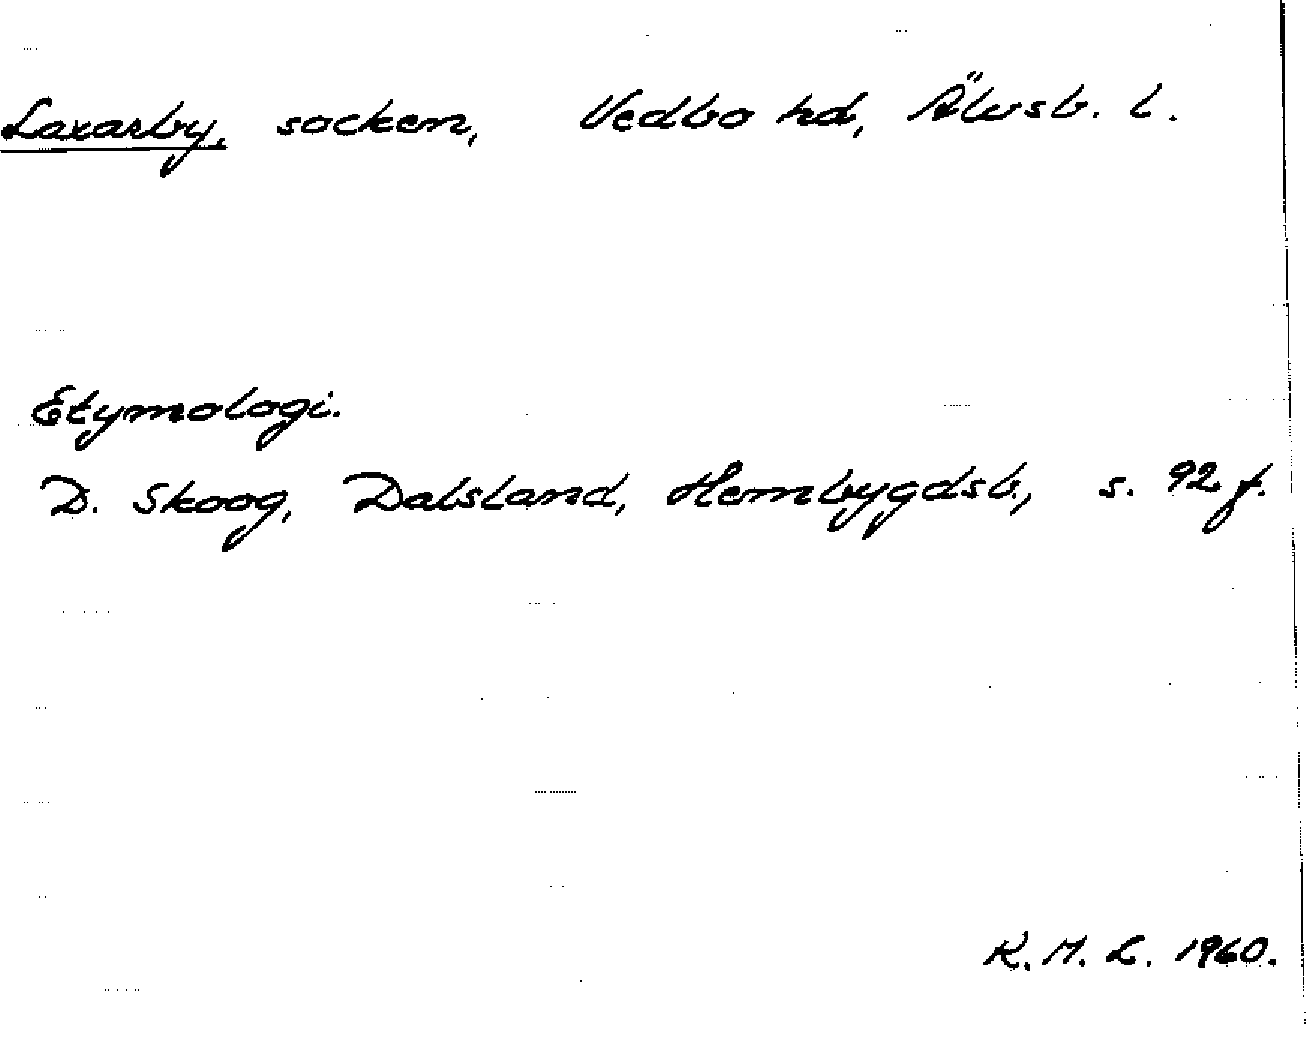 Laxarby, socken, Vedbo hd, Älvsb. l.
Etymologi.
D. Skoog, Dalsland, Hembygdsb., s. 92 f.
K. M. L. 1960.